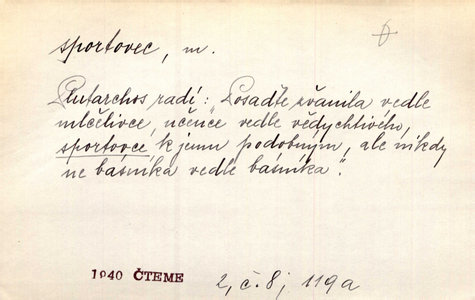 sportovec, m.
Plutarchos radí: „Posaďte žvanila vedle
mlčelivce, učence vedle vědychtivého,
sportovce k jemu podobným, ale nikdy
ne básníka vedle básníka".
1940 ČTEME
2, č. 8, 119a